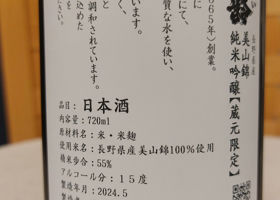 長野県産
美山錦
純米吟醸【蔵元限定】
665年)創業。
にて、
質な水を使い、
と
調和されています。
込めた
さい。
品目:日本酒
内容量:720ml
原材料名:米・米麹
使用米名:長野県産美山錦100%使用
精米歩合:55%
アルコール分:15度
製造年月:2024.5